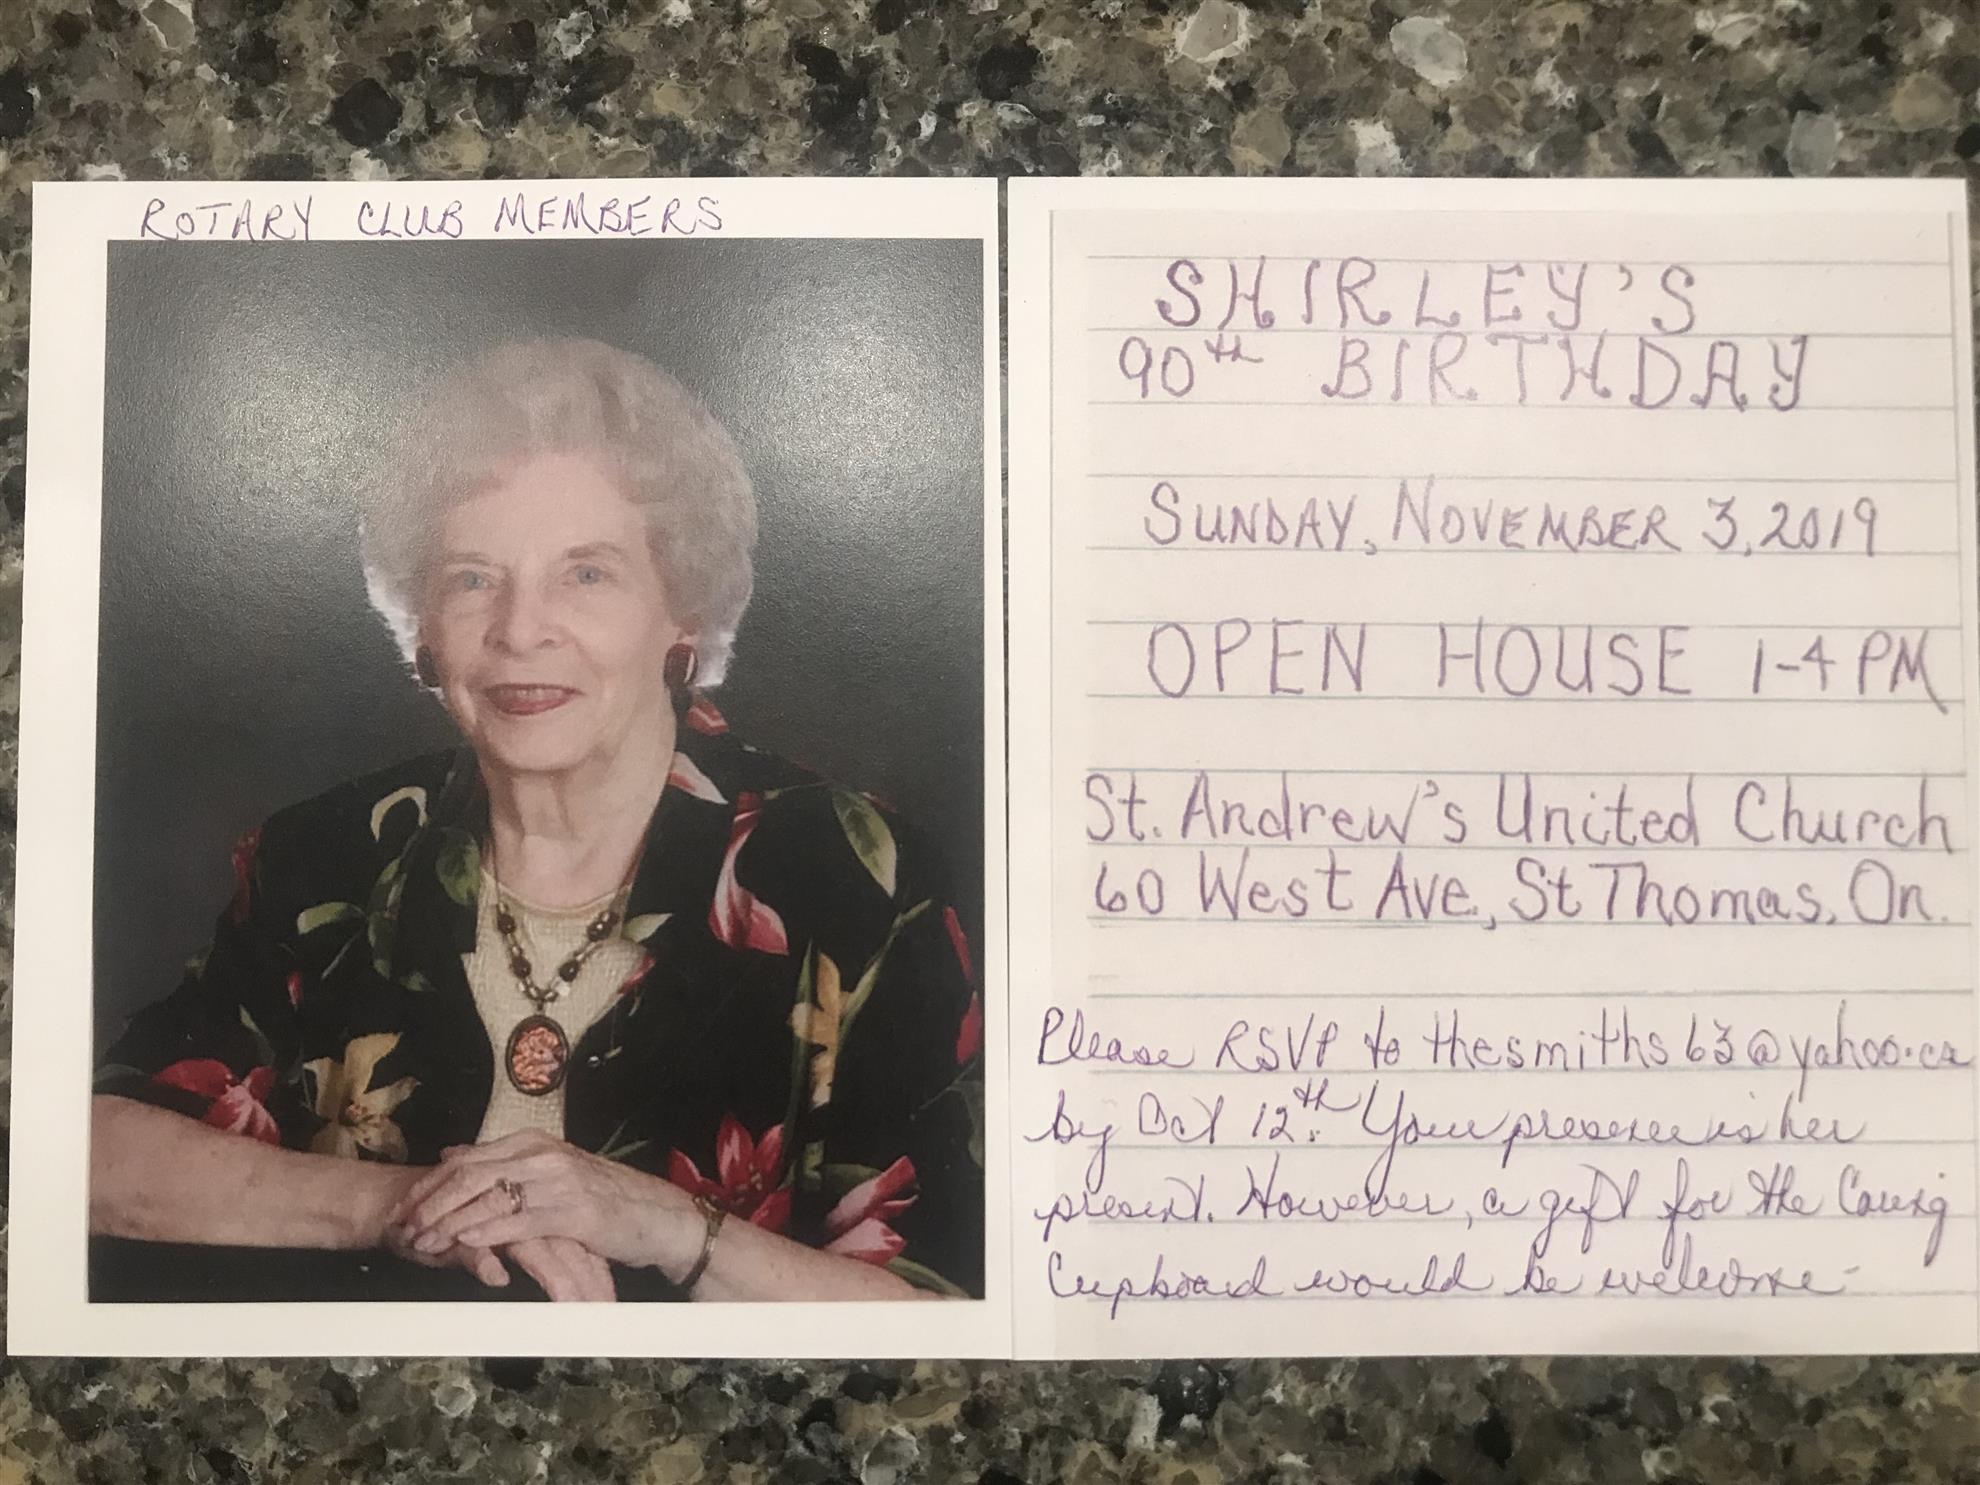 ROTARY CLUB MEMBERS
SHIRLEY'S
90th BIRTHDAY
SUNDAY, NOVEMBER 3, 2019
OPEN HOUSE 1-4 PM
St. Andrew's United Church
60 West Ave, St Thomas, On.
Please RSVP to thesmiths63@yahoo.ca
by Oct 12th. Your presence is her
present. However, a gift for the Caring
Cupboard would be welcome.